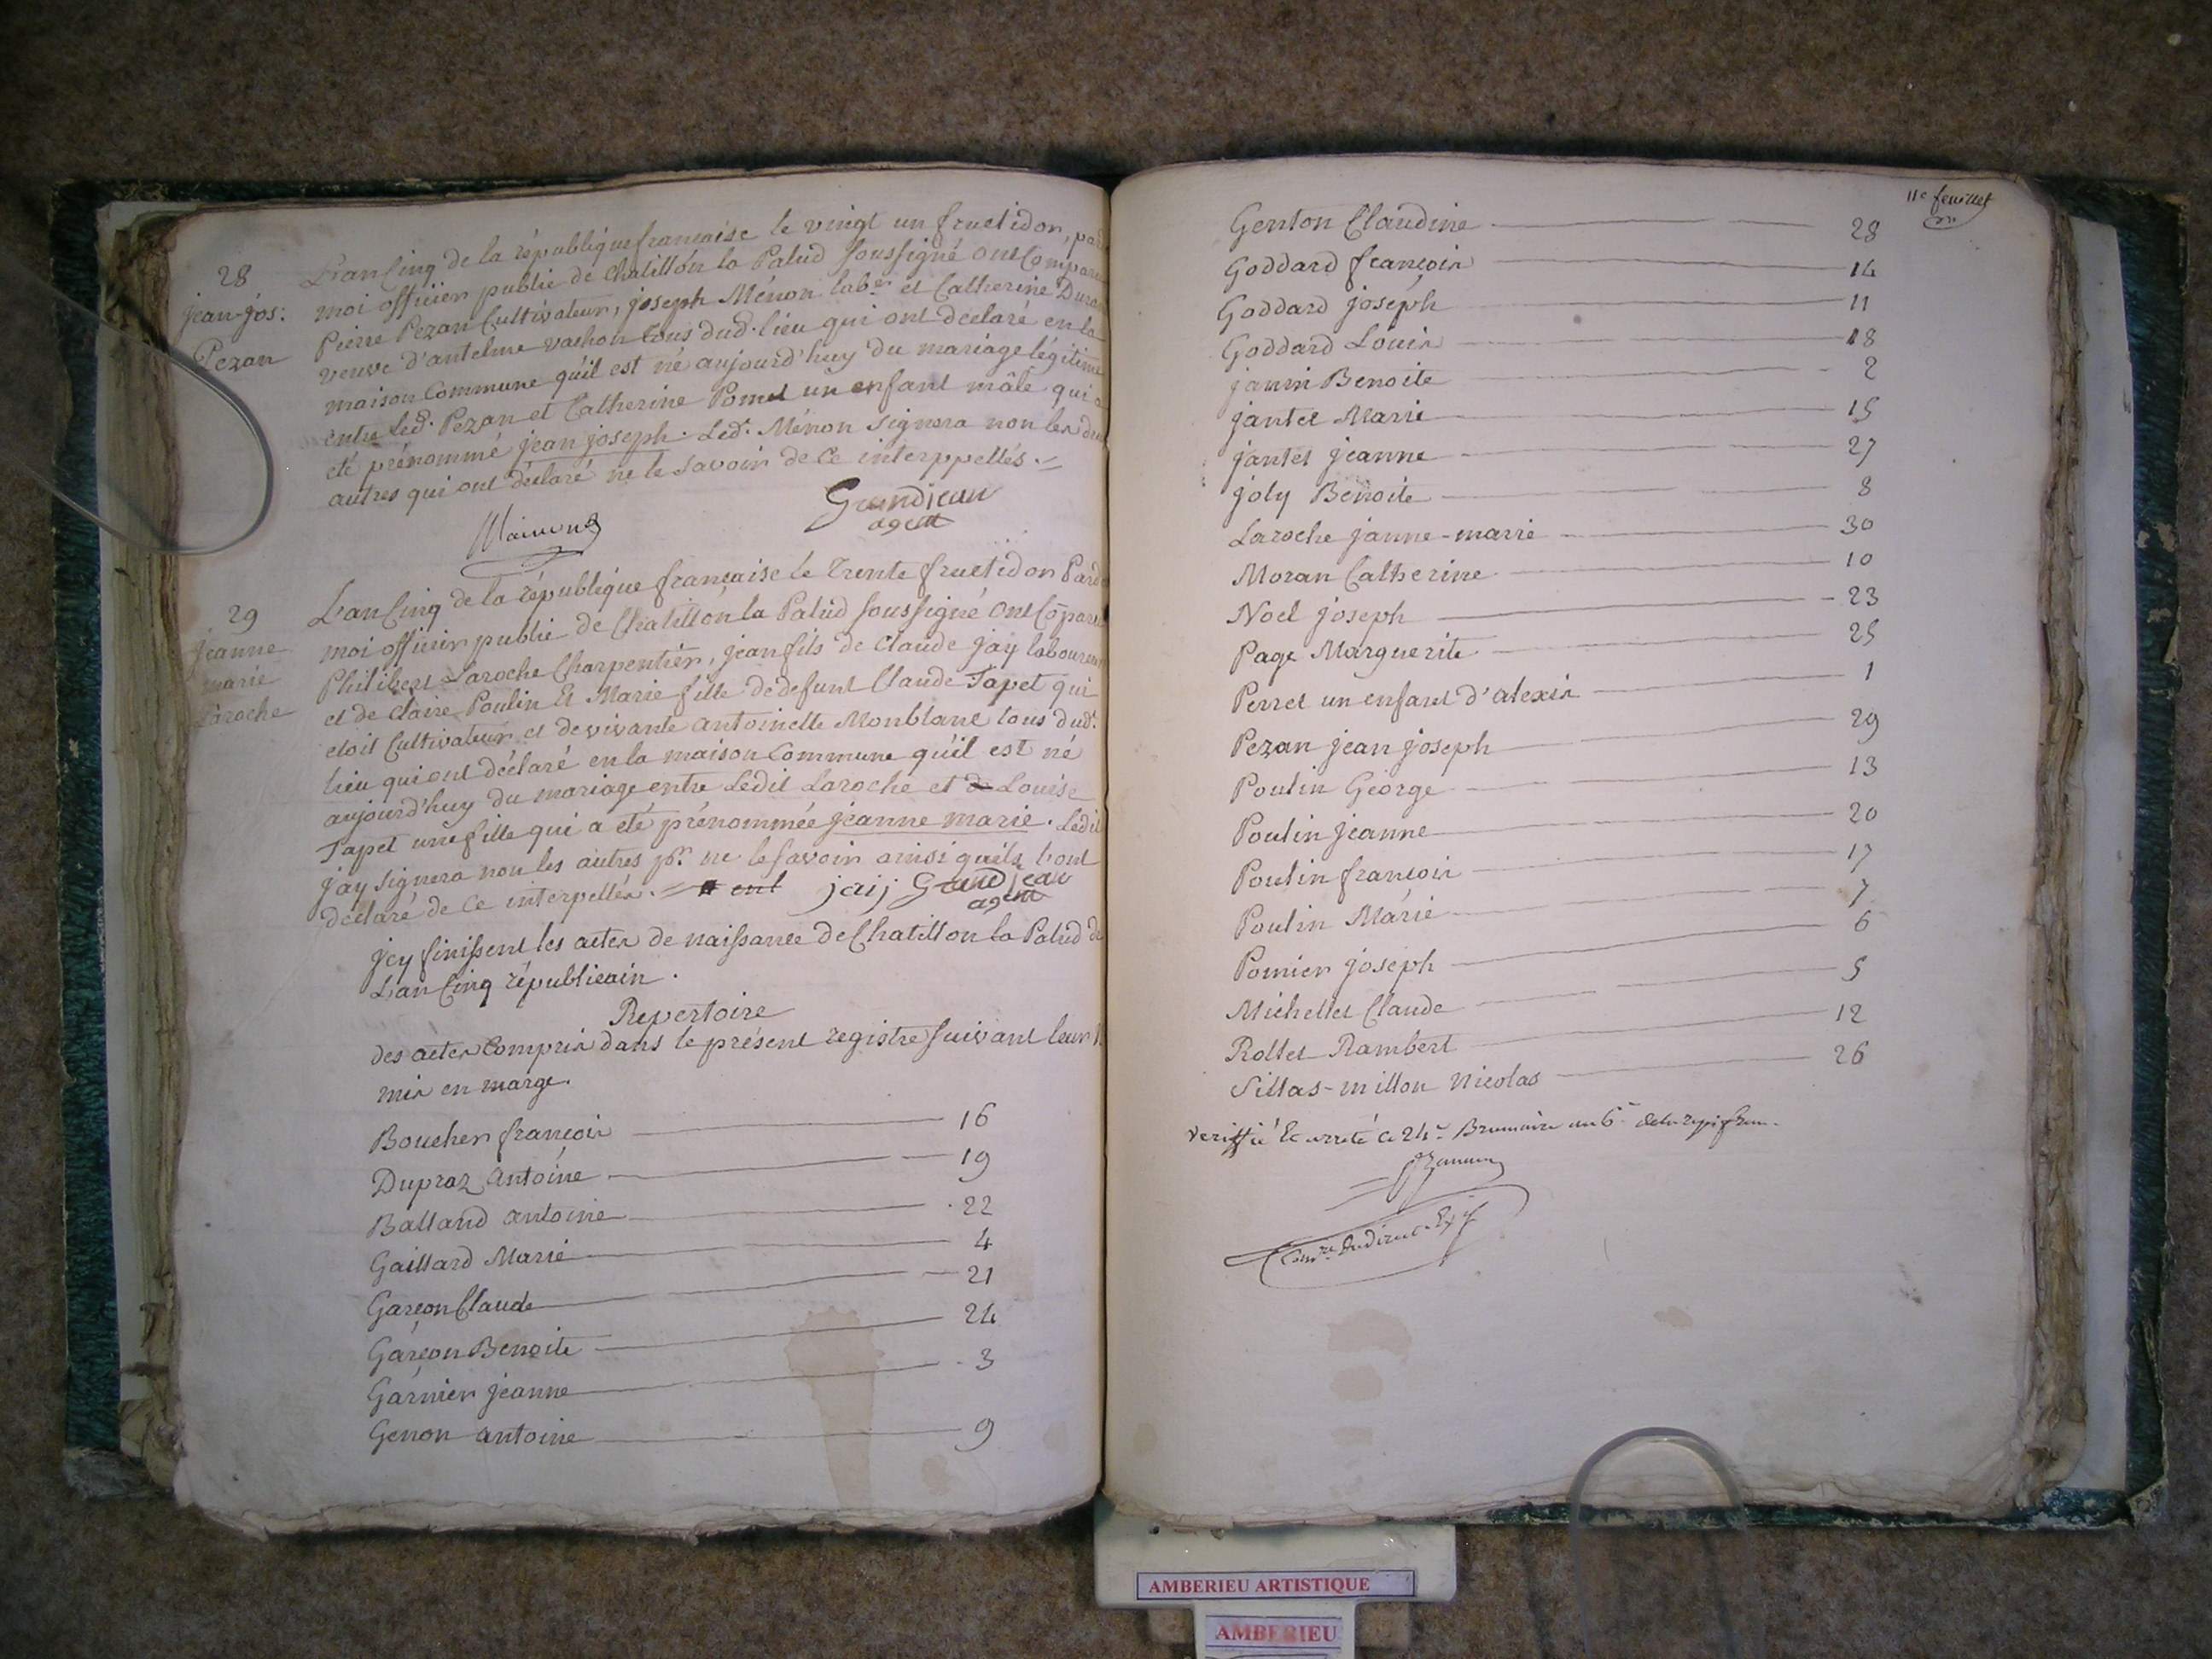 28
jean-jos:
Pezan
L'an Cinq de la république francaise le vingt un fructidor, par
moi officier public de Chatillon la Palud soussigné ont Comparu
Pierre Pezan Cultivateur, joseph Ménon labr. et Catherine Dura
veuve d'antelme vachon tous dud. lieu qui ont déclaré en la
maison Commune qu'il est né aujourd'huy du mariage légitime
entre led. Pezan et Catherine Pomet un enfant mâle qui a
été prénommé jean joseph. Led. Ménon signera non les deux
autres qui ont déclaré ne le savoir de Ce interppellés.
Grandjean
agent
29
jeanne
marie
Laroche
L'an Cinq de la république française le Trente fructidor Pard
moi officier public de Chatillon la Palud soussigné ont Coparu
Philibert Laroche Charpentier, jean fils de Claude jay laboureur
et de Claire Poulin Et Marie fille de defunt Claude Tapet qui
etoit Cultivateur et de vivante antoinette Monblanc tous dud.
lieu qui ont déclaré en la maison Commune qu'il est né
aujourd'huy du mariage entre Ledit Laroche et de Louise
Tapet une fille qui a été prénommée jeanne marie. Ledit
jay signera non les autres pr. ne le savoir ainsi qu'ils l'ont
déclaré de Ce interpellés. jaij Grandjean
agent
jcy finissent les actes de naissance de Chatillon la Palud de
L'an Cinq républicain.
Repertoire
des actes Compris dans le présent registre suivant leur
mis en marge.
Boucher françois 16
Dupraz Antoine 19
Balland antoine 22
Gaillard Marie 4
Garçon Claude 21
Garçon Benoite 24
Garnier jeanne 3
Genon antoine 9
11e feuillet
Genton Claudine 28
Goddard françois 14
Goddard joseph 11
Goddard Louis 18
janin Benoite 2
jantet Marie 15
jantet jeanne 27
joly Benoite 8
Laroche janne-marie 30
Moran Catherine 10
Noel joseph 23
Page Marguerite 25
Perret un enfant d'alexis 1
Pezan jean joseph 29
Poulin George 13
Poulin jeanne 20
Poulin francois 17
Poulin Marie 7
Pomier joseph 6
Michellet Claude 5
Rollet Rambert 12
Sillas-millon Nicolas 26
Veriffié Et arreté Ce 24e Brumaire an 6e de la rep. fran.
AMBERIEU ARTISTIQUE
AMBERIEU